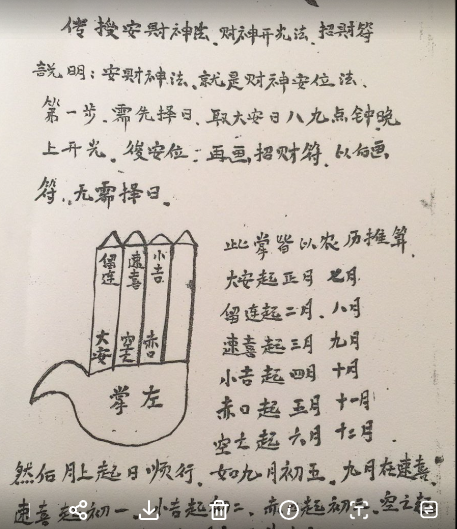 传授安财神法、财神开光法、招财符
説明：安财神法、就是财神安位法、
第一步、需先择日、取大安日八九点钟晚
上开光、後安位、再画招财符、以后画
符、无需择日、
留连 速喜 小吉
大安 空亡 赤口
掌左
此掌皆以农历推算、
大安起正月 七月
留连起二月、八月
速喜起三月 九月
小吉起四月 十月
赤口起五月 十一月
空亡起六月 十二月、
然后月上起日顺行、如九月初五、九月在速喜
速喜起初一、小吉起初二、赤口起初三、空亡